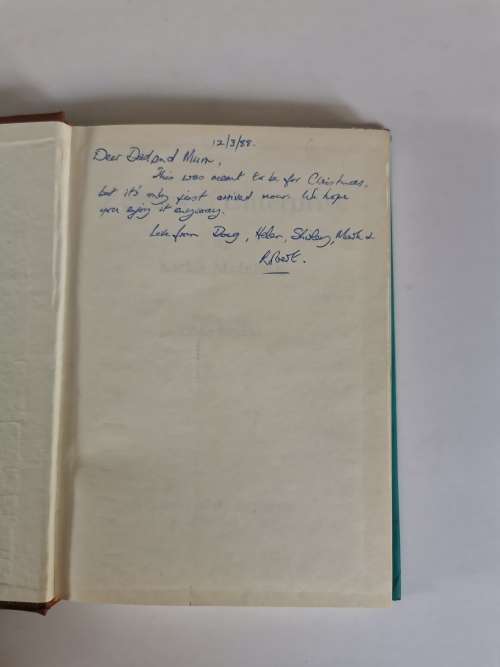 12/3/88.
Dear Dad and Mum,
This was meant to be for Christmas,
but it's only just arrived now. We hope
you enjoy it anyway.
Love from Doug, Helen, Shirley, Mark &
Robert.